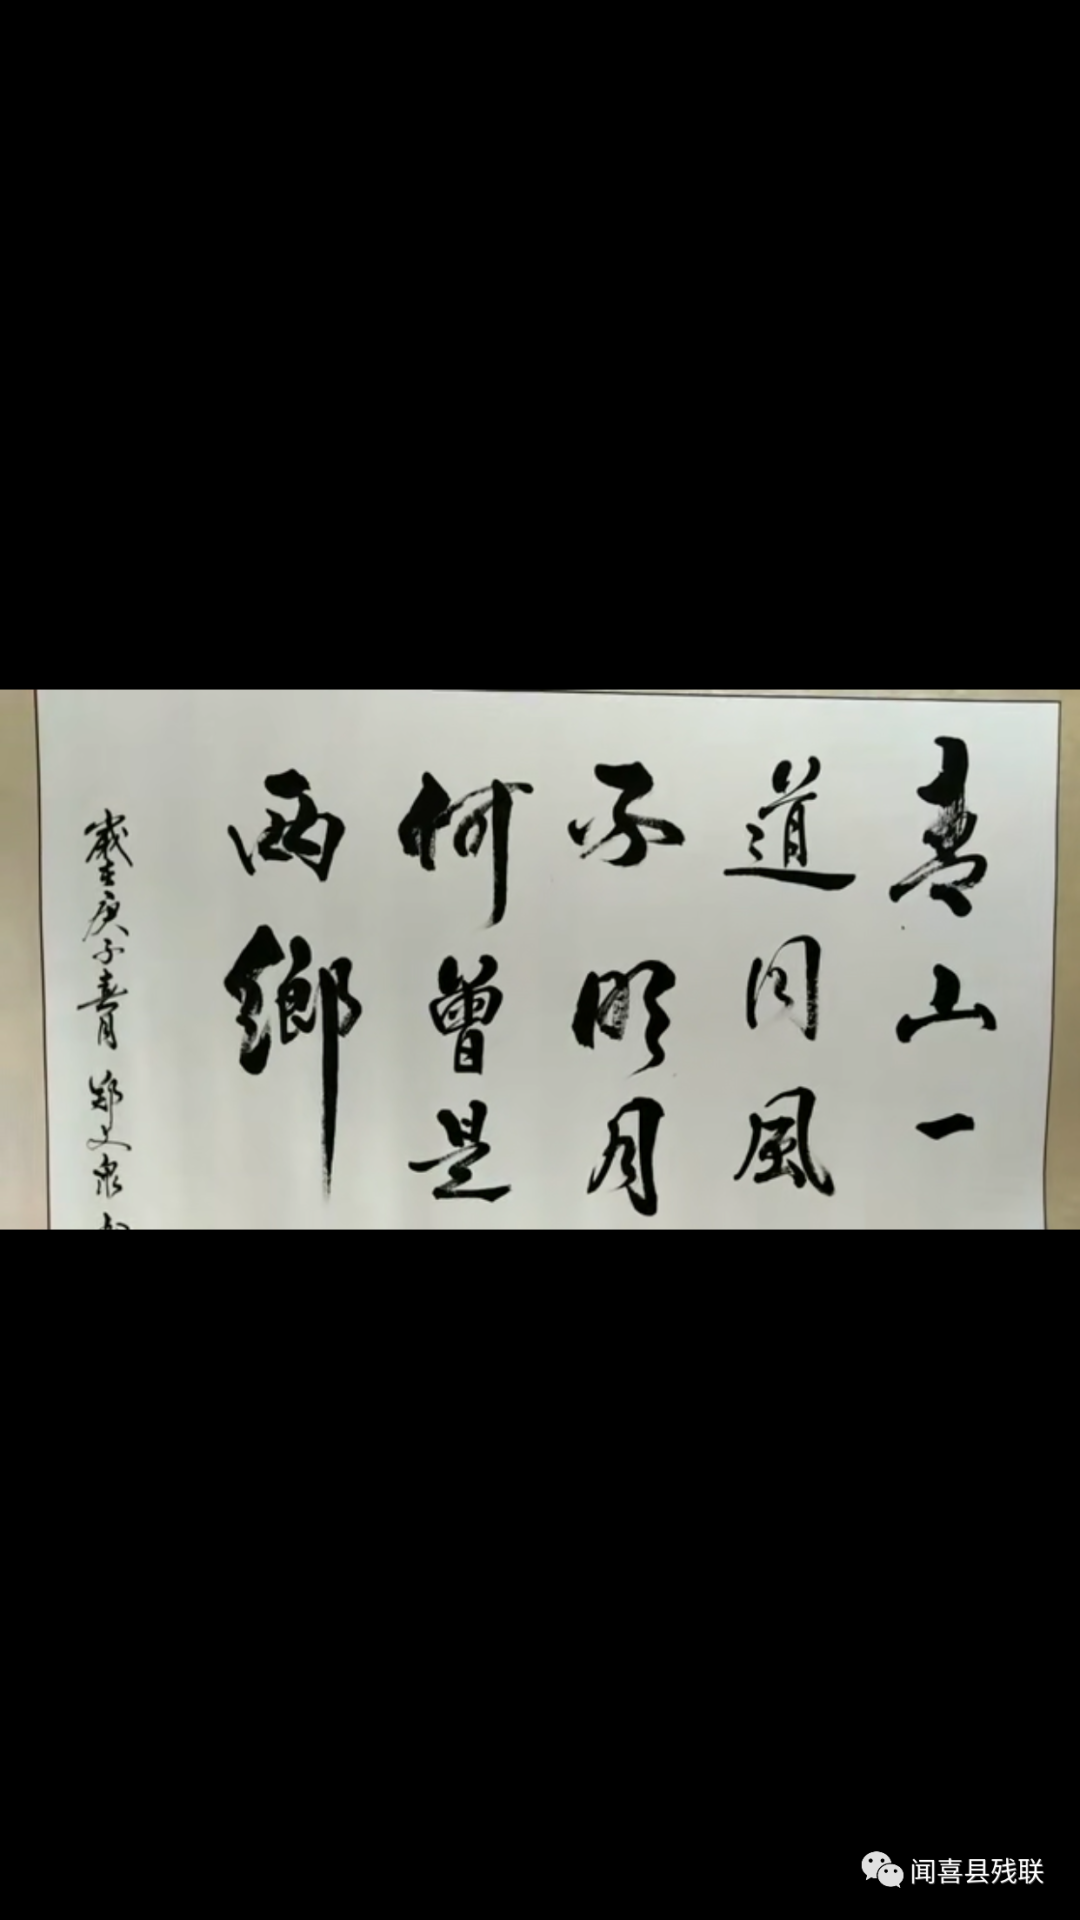 青山一
道同風
雨明月
何曾是
两鄉
歲在庚子春月 郑文泉
闻喜县残联